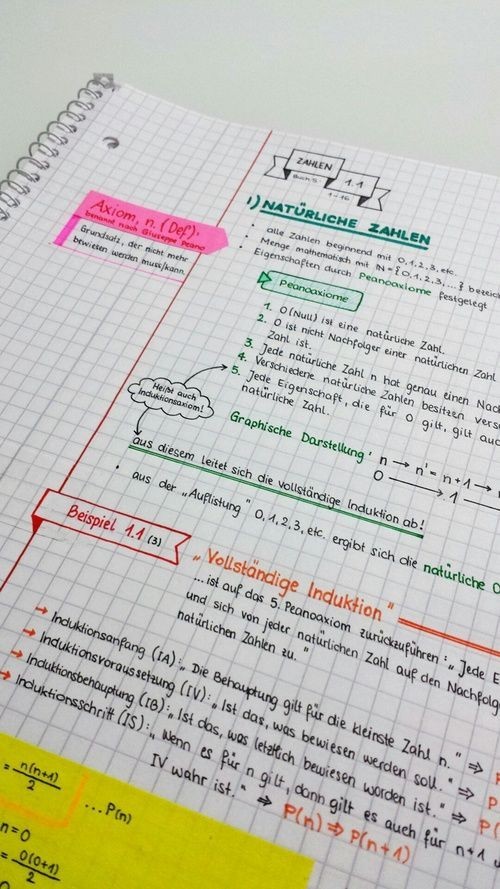 ZAHLEN
Buch S.
1.1
1-16
1) NATÜRLICHE ZAHLEN
Axiom, n. (Def),
benannt nach Giuseppe Peano
Grundsatz, der nicht mehr
bewiesen werden muss/kann.
• alle Zahlen beginnend mit 0,1,2,3, etc.
• Menge mathematisch mit N = {0,1,2,3,...}
• Eigenschaften durch Peanoaxiome festgelegt
Peanoaxiome
1. 0 (Null) ist eine natürliche Zahl.
2. 0 ist nicht Nachfolger einer natürlichen Zahl
Zahl ist.
3. Jede natürliche Zahl n hat genau einen
4. Verschiedene natürliche Zahlen besitzen
5. Jede Eigenschaft, die für 0 gilt, gilt
natürliche Zahl.
Heißt auch
Induktionsaxiom!
Graphische Darstellung: n → n' = n+1 →
0 → 1
aus diesem leitet sich die vollständige Induktion ab!
• aus der „Auflistung" 0,1,2,3, etc. ergibt sich die natürliche
Beispiel 1.1 (3)
„Vollständige Induktion"
...ist auf das 5. Peanoaxiom zurückzuführen: „Jede
und sich von jeder natürlichen Zahl auf den
natürlichen Zahlen zu."
→ Induktionsanfang (IA): „Die Behauptung gilt für die kleinste Zahl n." ⇒
→ Induktionsvoraussetzung (IV): „Ist das, was bewiesen werden soll." ⇒
→ Induktionsbehauptung (IB): „Ist das, was letztlich bewiesen worden ist." ⇒
→ Induktionsschritt (IS): „Wenn es für n gilt, dann gilt es auch für n+1
IV wahr ist." ⇒ P(n) ⇒ P(n+1)
= n(n+1)/2 ...P(n)
n=0
= 0(0+1)/2